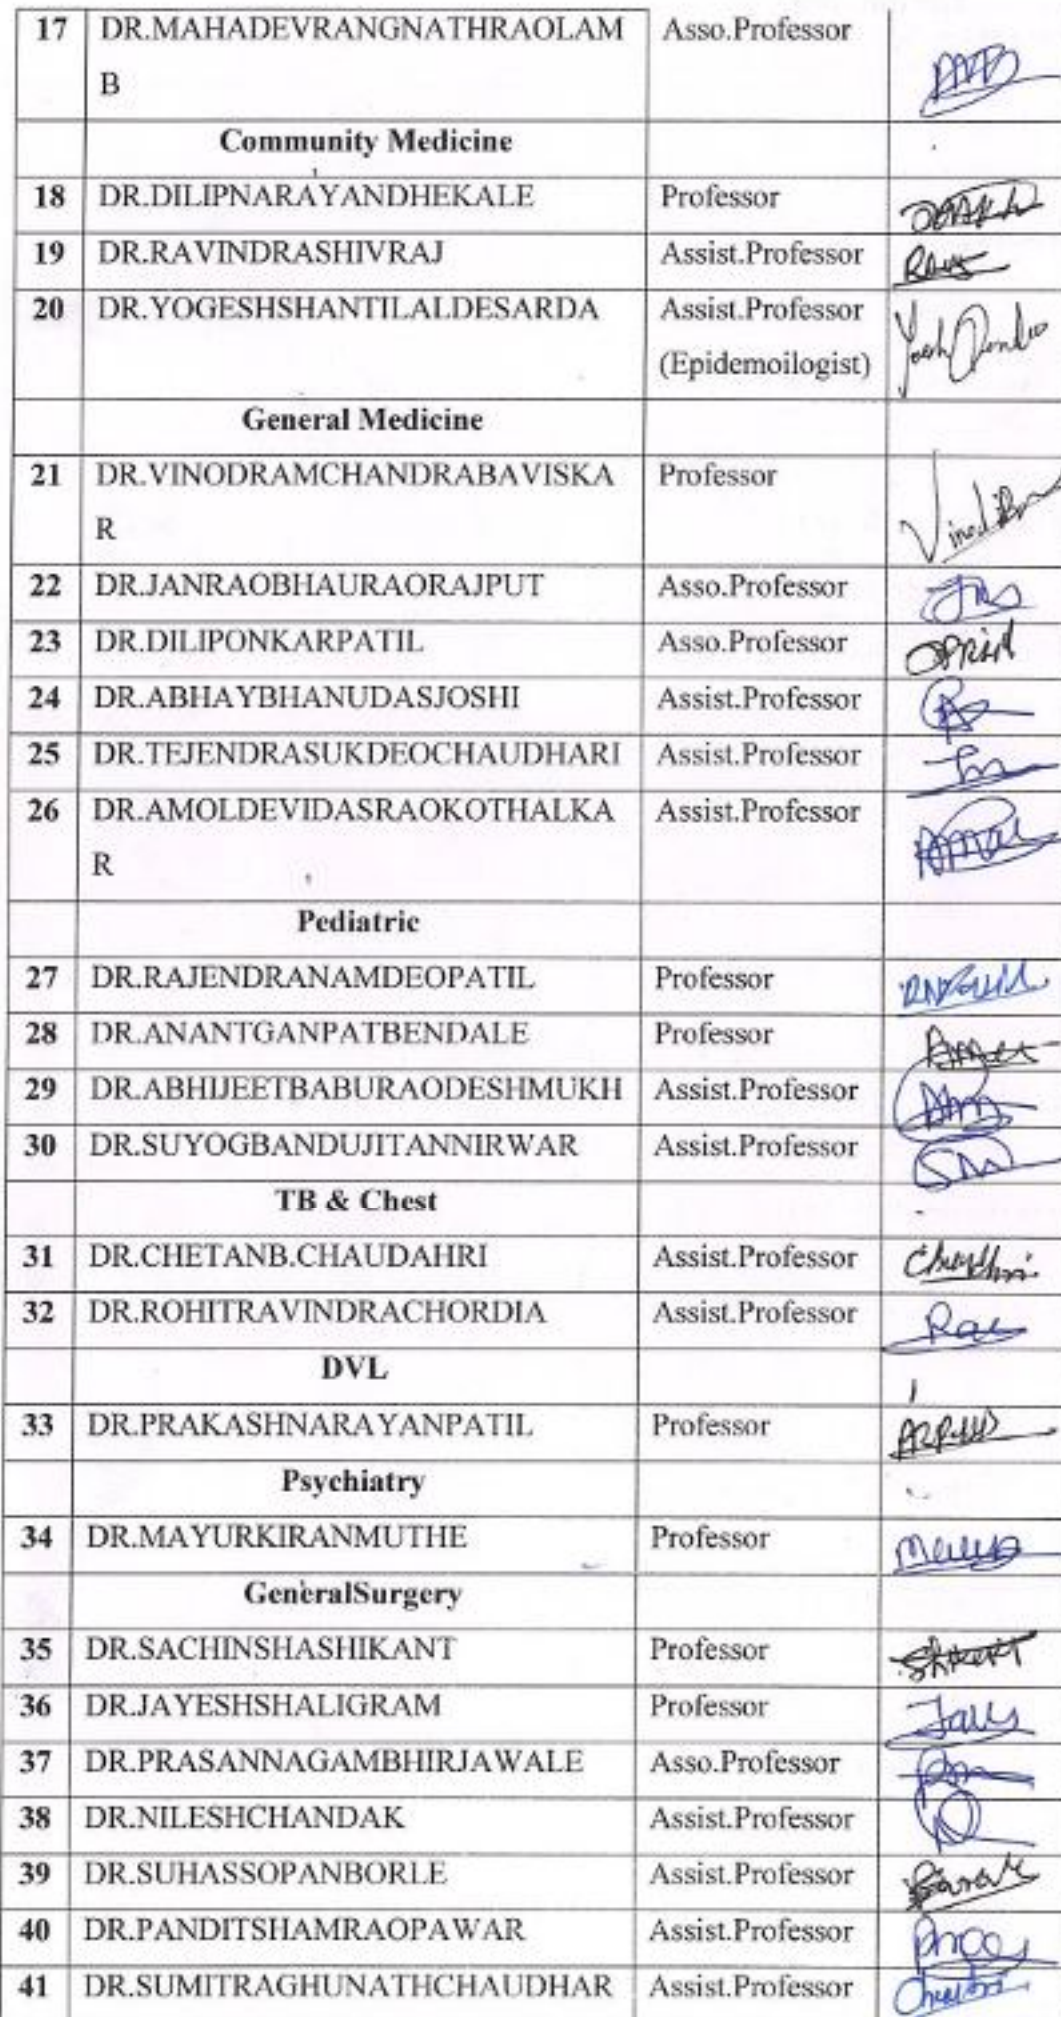 17 DR.MAHADEVRANGNATHRAOLAM Asso.Professor
B
Community Medicine
18 DR.DILIPNARAYANDHEKALE Professor
19 DR.RAVINDRASHIVRAJ Assist.Professor
20 DR.YOGESHSHANTILALDESARDA Assist.Professor
(Epidemoilogist)
General Medicine
21 DR.VINODRAMCHANDRABAVISKA Professor
R
22 DR.JANRAOBHAURAORAJPUT Asso.Professor
23 DR.DILIPONKARPATIL Asso.Professor
24 DR.ABHAYBHANUDASJOSHI Assist.Professor
25 DR.TEJENDRASUKDEOCHAUDHARI Assist.Professor
26 DR.AMOLDEVIDASRAOKOTHALKA Assist.Professor
R
Pediatric
27 DR.RAJENDRANAMDEOPATIL Professor
28 DR.ANANTGANPATBENDALE Professor
29 DR.ABHIJEETBABURAODESHMUKH Assist.Professor
30 DR.SUYOGBANDUJITANNIRWAR Assist.Professor
TB & Chest
31 DR.CHETANB.CHAUDAHRI Assist.Professor
32 DR.ROHITRAVINDRACHORDIA Assist.Professor
DVL
33 DR.PRAKASHNARAYANPATIL Professor
Psychiatry
34 DR.MAYURKIRANMUTHE Professor
GeneralSurgery
35 DR.SACHINSHASHIKANT Professor
36 DR.JAYESHSHALIGRAM Professor
37 DR.PRASANNAGAMBHIRJAWALE Asso.Professor
38 DR.NILESHCHANDAK Assist.Professor
39 DR.SUHASSOPANBORLE Assist.Professor
40 DR.PANDITSHAMRAOPAWAR Assist.Professor
41 DR.SUMITRAGHUNATHCHAUDHAR Assist.Professor